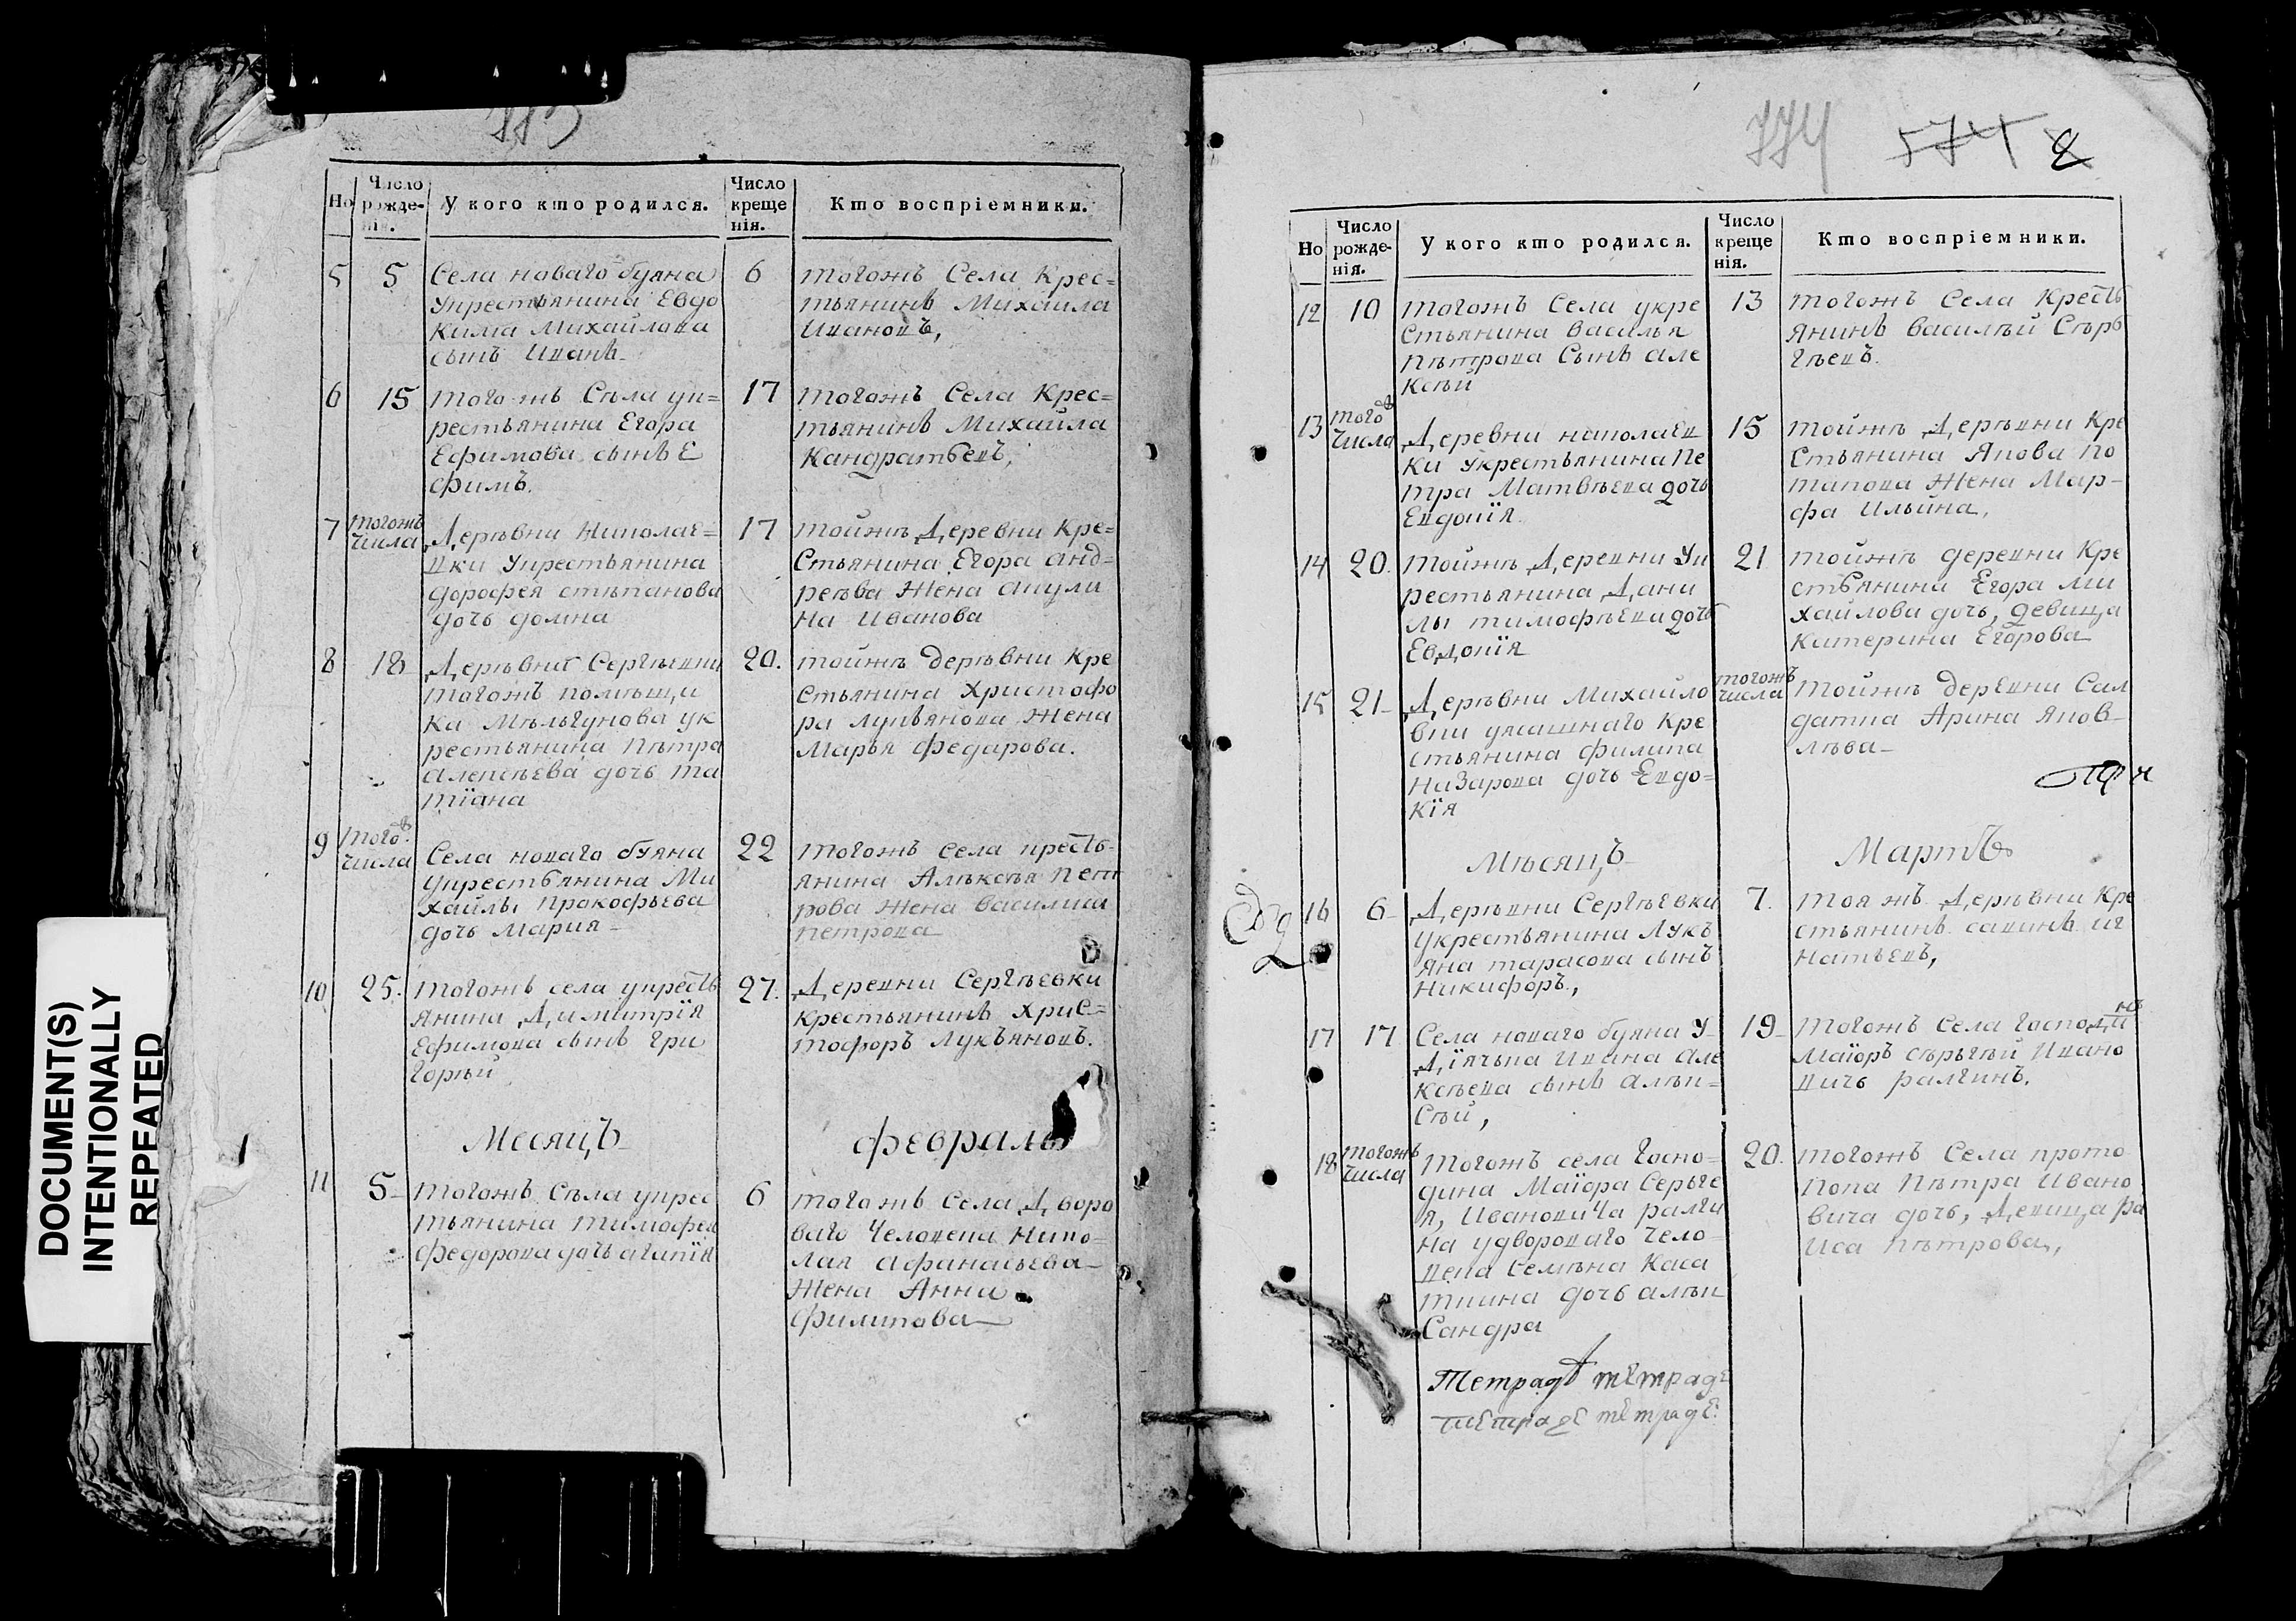 773
Но
Число рожде-нія.
У кого кто родился.
Число креще нія.
Кто воспріемники.
5
5
Села новаго буяна
укрестьянина Евдо
кима Михайлова
сынъ Иванъ
6
тогожъ Села Крес=
тьянинъ Михайла
Ивановъ,
6
15
тогожъ Съла ук=
рестьянина Егора
Ефимова сынъ Е
фимъ.
17
тогожъ Села Крес=
тьянинъ Михайла
Кандратьевъ,
7
тогожъ
числа
Дерѣвни Николае=
вки укрестьянина
дорофея стѣпанова
дочь домна
17
тойжъ Деревни Кре=
стьянина Егора анд=
реѣва Жена акули
на Иванова
8
18
Дерѣвни Сергѣевки
тогожъ помѣщи
ка Мѣльгунова ук
рестьянина Пѣтра
алексѣева дочь та
тїана
20.
тойжъ дерѣвни Кре
стьянина Христофо
ра лукьянова Жена
Марья Федарова.
9
того
числа
Села новаго буяна
укрестьянина Ми
хайлы Прокофьева
дочь Мария
22
тогожъ села кресть
янина Алѣксѣя Пет
рова жена василиса
петрова
10
25.
тогожъ села укресть
янина Димитрїя
Ефимова сынъ гри
горѣй
27.
Деревни Сергѣевки
крестьянинъ Хрис=
тофоръ Лукъяновъ.
Месяцъ
февраль
11
5
тогожъ Съла укрес
тьянина тимофея
Федорова дочь агапїя
6
тогожъ Села Дворо
ваго Человека Нико
лая афанасьева
Жена Анна
Филипова
774 574 2
Но
Число рожде-нія.
У кого кто родился.
Число креще нія.
Кто воспріемники.
12
10
тогожъ Села укре
стьянина василья
пѣтрова Сынъ але
ксѣй
13
тогожъ Села Кресть
янинъ василѣй Сѣрь
гѣевъ.
13
того
числа
Деревни николаев
ки укрестьянина Пе
тра Матвѣева дочь
Евдокїя
15
тойжъ Дерѣвни Кре
стьянина Якова По
тапова Жена Мар-
фа Ильина,
14
20.
тойжъ Деревни Ук
рестьянина Дани
лы тимофѣева дочь
Евдокїя
21
тойжъ деревни Кре
стьянина Егора Ми
хайлова дочь, девица
катерина Егорова
15
21
Дерѣвни Михайло
вки ясашнаго кре
стьянина филипа
назарова дочь Евдо=
кїя
тогожъ
числа
тойжъ деревни Сал
датка Арина яков
лѣва
Мѣсяцъ
Мартъ
16
6
Дерѣвни Сергѣевки
укрестьянина Лукъ
яна тарасова сынъ
Никифоръ,
7.
тоя жъ Дерѣвни Кре
стьянинъ савинъ иг
натьевъ,
17
17
Села новаго буяна у
Дїячька Ивана але
ксѣева сынъ алѣк=
сѣй,
19
тогожъ Села господи
нъ
Маїоръ сѣрьгѣй Ивано
вичь ралгинъ.
18
тогожъ
числа
тогожъ села госпо=
дина Маїора Серьге
я, Ивановича ралги
на удворовaго чело
века Семѣна Каса
ткина дочь алѣк
сандра
20.
тогожъ Села прото
попа Пѣтра Ивано
вича дочь, Девица ра
иса пѣтрова,
Тетрадь тетраде
тетраде тетраде
DOCUMENT(S)
INTENTIONALLY
REPEATED